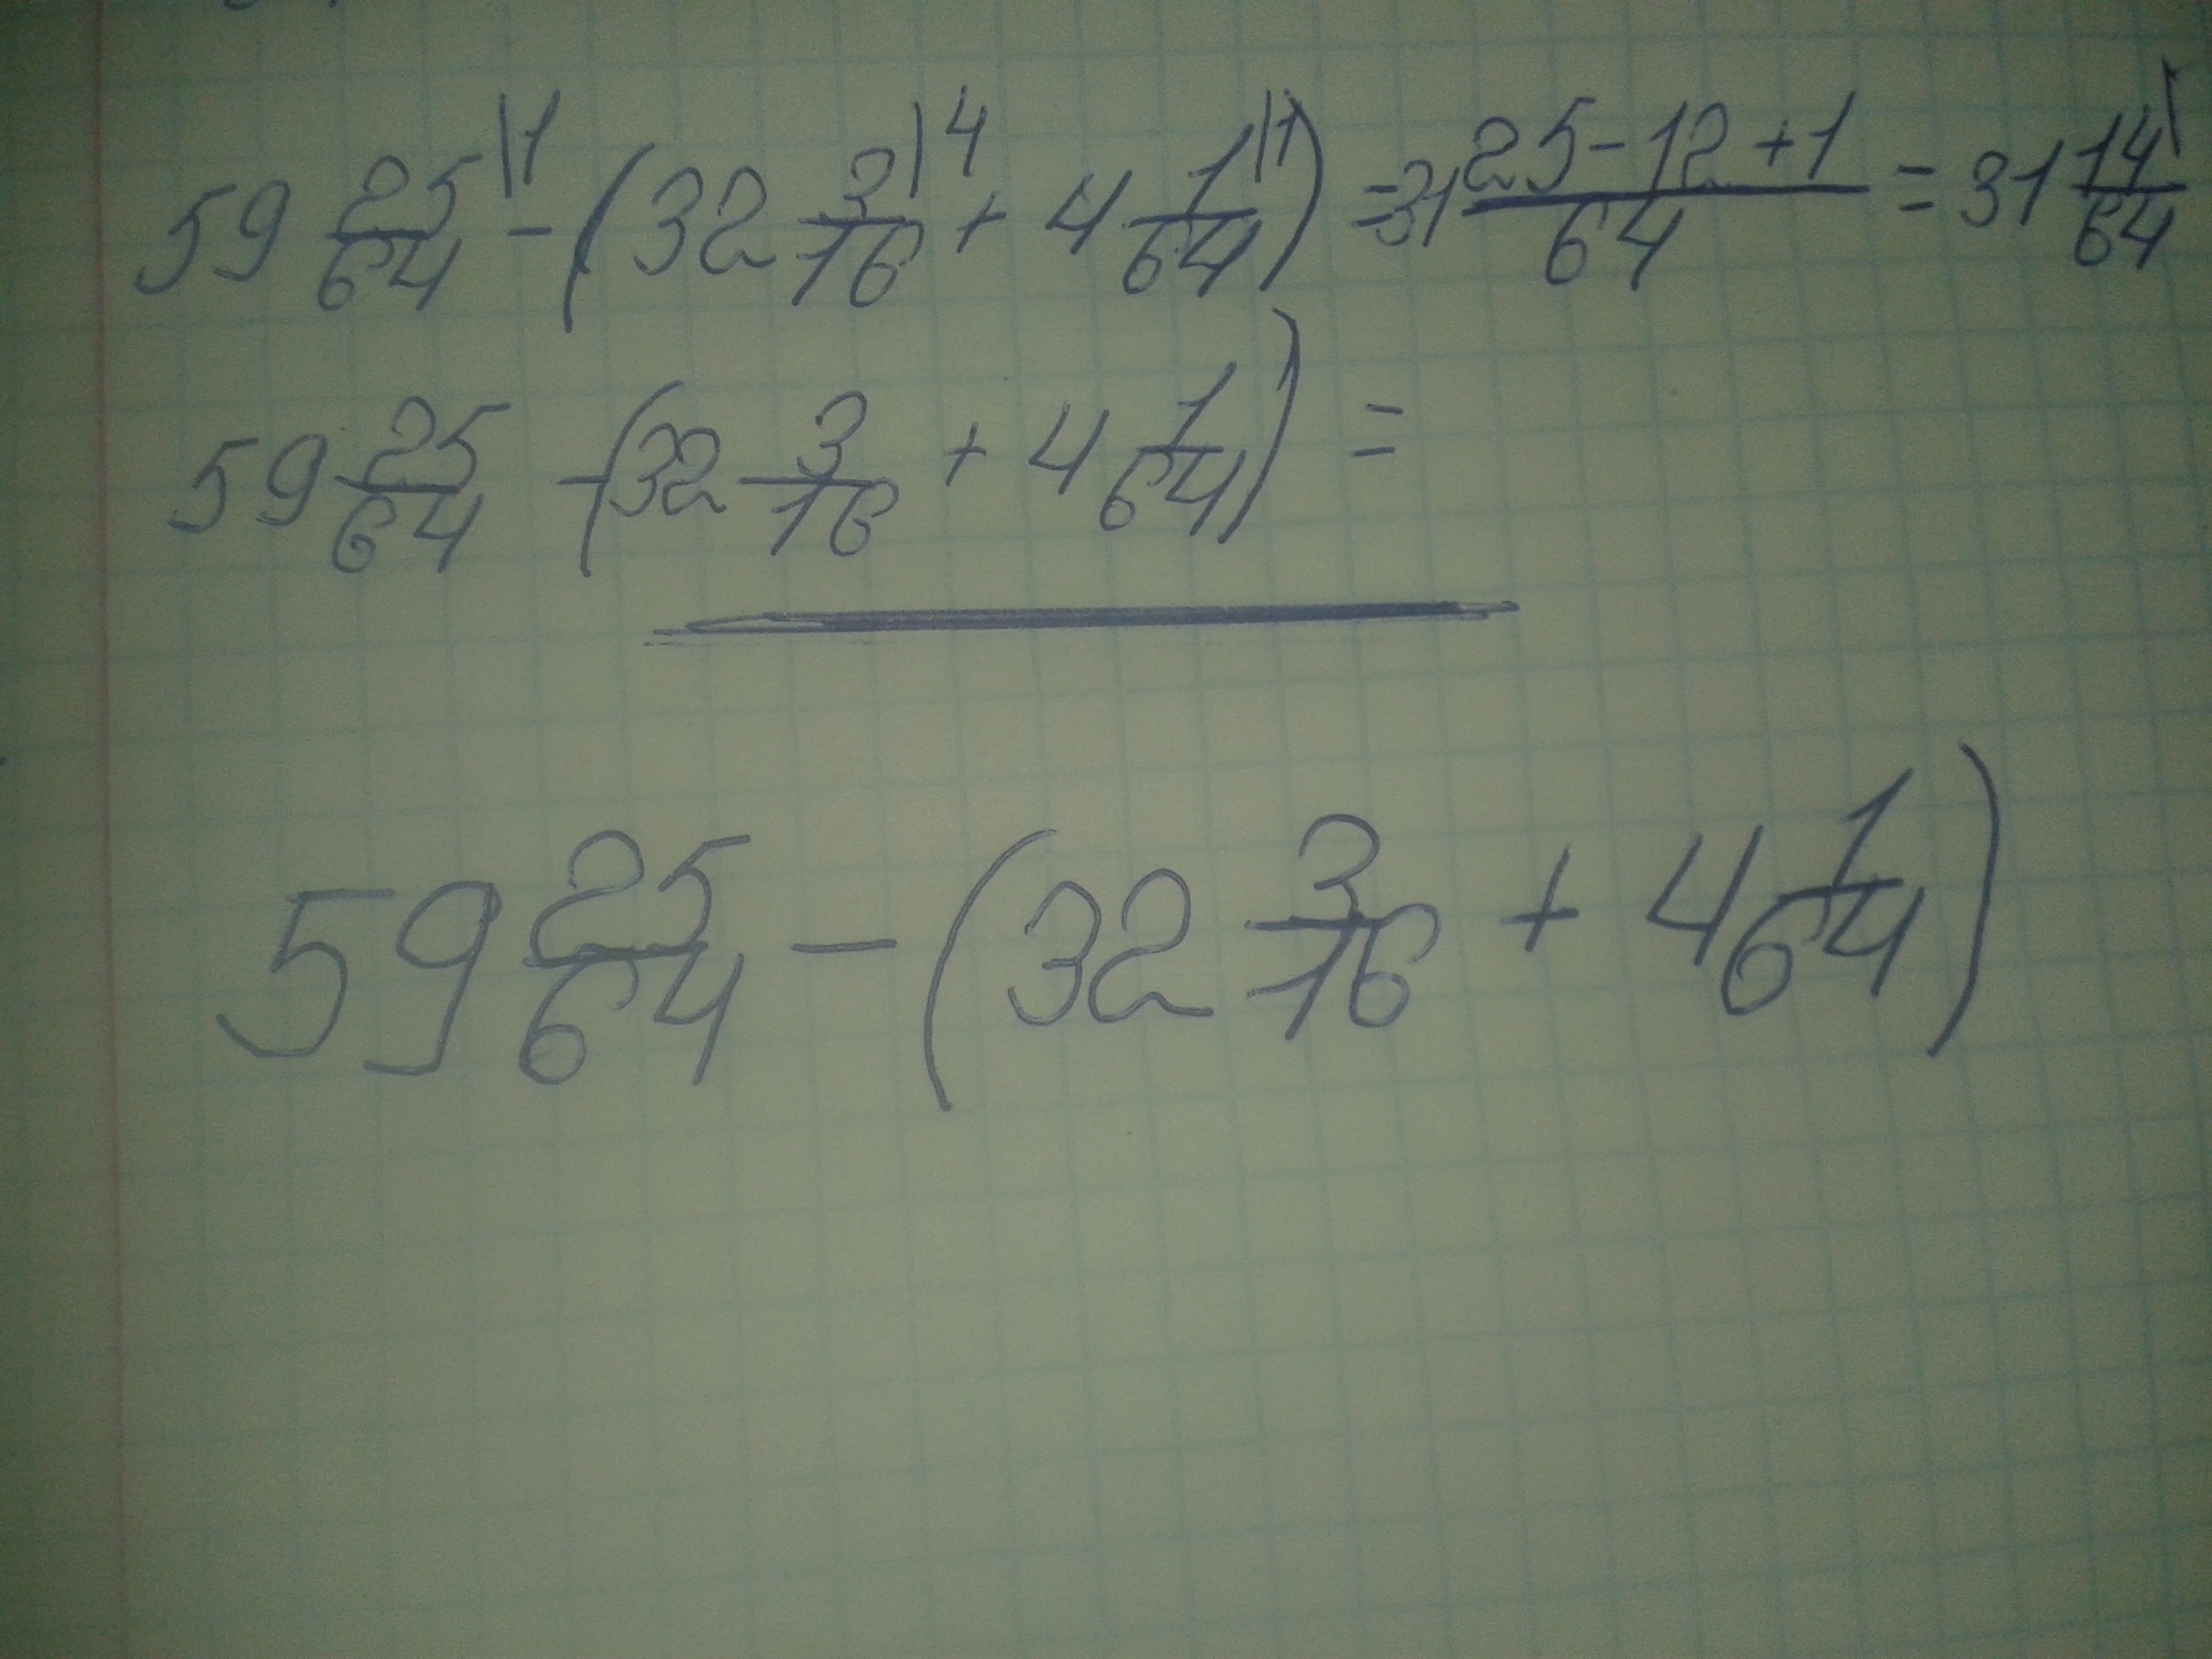 59 25/64 |1 - (32 3/16 |4 + 4 1/64 |1) = 31 25-12+1/64 = 31 14/64
59 25/64 - (32 3/16 + 4 1/64) =
59 25/64 - (32 3/16 + 4 1/64)